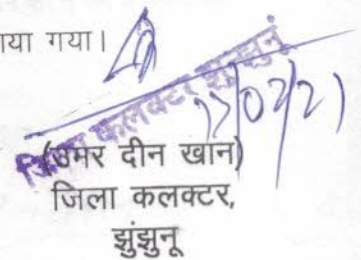 ाया गया।
जिला कलक्टर झुंझुनूं
(उमर दीन खान)
जिला कलक्टर,
झुंझुनू